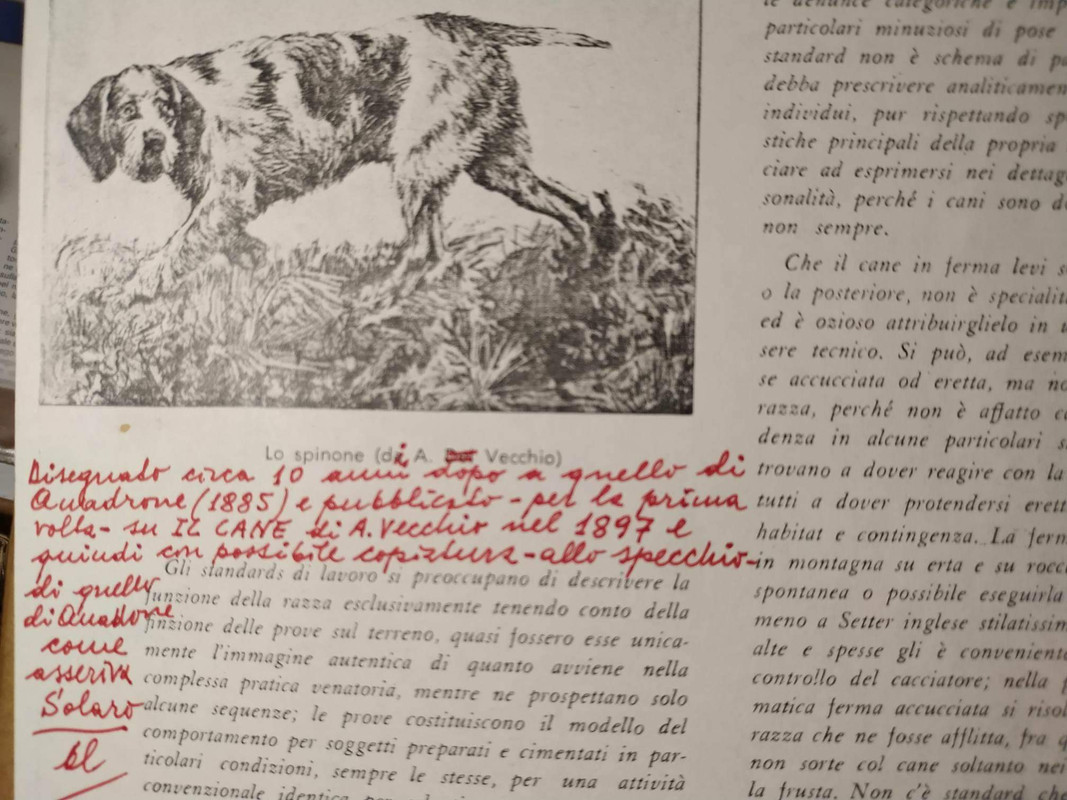 Lo spinone (di A. Vecchio)
Disegnato circa 10 anni dopo a quello di
Quadrone (1885) e pubblicato - per la prima
volta - su IL CANE di A. Vecchio nel 1897 e
quindi con possibile copiatura - allo specchio -
di quello
di Quadrone
come
asseriva
Solaro
Gli standards di lavoro si preoccupano di descrivere la
funzione della razza esclusivamente tenendo conto della
finzione delle prove sul terreno, quasi fossero esse unica-
mente l'immagine autentica di quanto avviene nella
complessa pratica venatoria, mentre ne prospettano solo
alcune sequenze; le prove costituiscono il modello del
comportamento per soggetti preparati e cimentati in par-
ticolari condizioni, sempre le stesse, per una attività
convenzionale identica
te denunce categoriche e
particolari minuziosi di pose
standard non è schema di
debba prescrivere
individui, pur rispettando
stiche principali della propria
ciare ad esprimersi nei
sonalità, perché i cani sono
non sempre.
Che il cane in ferma levi
o la posteriore, non è
ed è ozioso attribuirglielo in
sere tecnico. Si può, ad
se accucciata od eretta, ma
razza, perché non è affatto
denza in alcune particolari
trovano a dover reagire con la
tutti a dover protendersi
habitat e contingenza. La
in montagna su erta e su
spontanea o possibile eseguirla
meno a Setter inglese
alte e spesse gli è
controllo del cacciatore; nella
matica ferma accucciata si
razza che ne fosse afflitta, fra
non sorte col cane soltanto nei
la frusta. Non c'è standard che